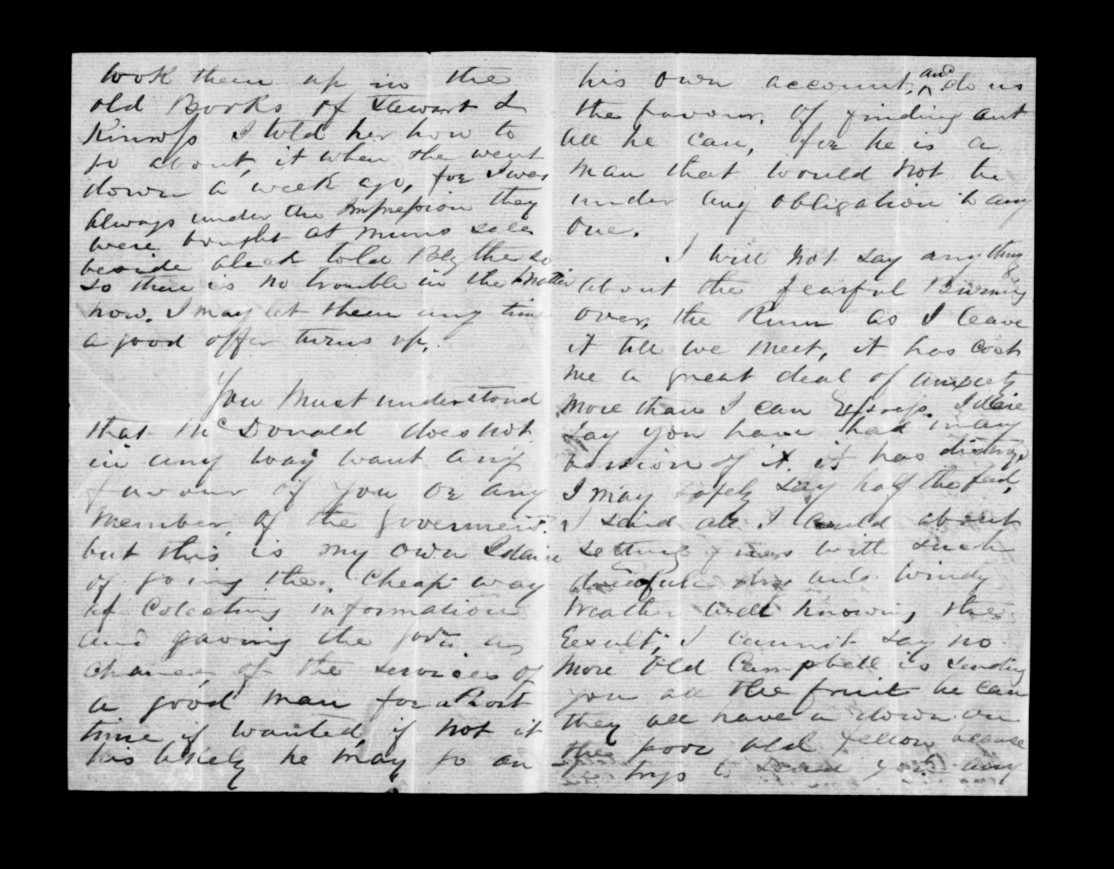 look them up in the
old Books of Stewart &
Kinross I told her how to
go about it when she went
down a week ago, for I was
always under the Impression they
were bought at Munns sale
beside aleck told Blythe so
so there is no trouble in the matter
now. I may let them any time
a good offer turns up.
You Must understand
that McDonald does not
in any way want any
favour of you or any
member of the Goverment.
but this is my own Idaie
of going the Cheap way
of Colecting information
and gaving the Govn. any
chance, of the services of
a good man for a Short
time if wanted, if not it
his likely he may go on
his own account, and do us
the favour. Of finding out
all he can, for he is a
man that would Not be
under any obligation to any
one.
I will Not say anything
about the fearful Burning
over, the Runn as I leave
it till we Meet, it has cost
me a great deal of anxiety
more than I can Express. I daie
say you have had many
vission of it. it has distroyd
I may safely say half the feed,
I said all I could about
setting fires with such
dry and Windy
Weather well knowing the
Result, I cannot say no
More Old Campbell is sending
you all the fruit he can
they all have a down on
the poor old fellow because
he trys to send you any